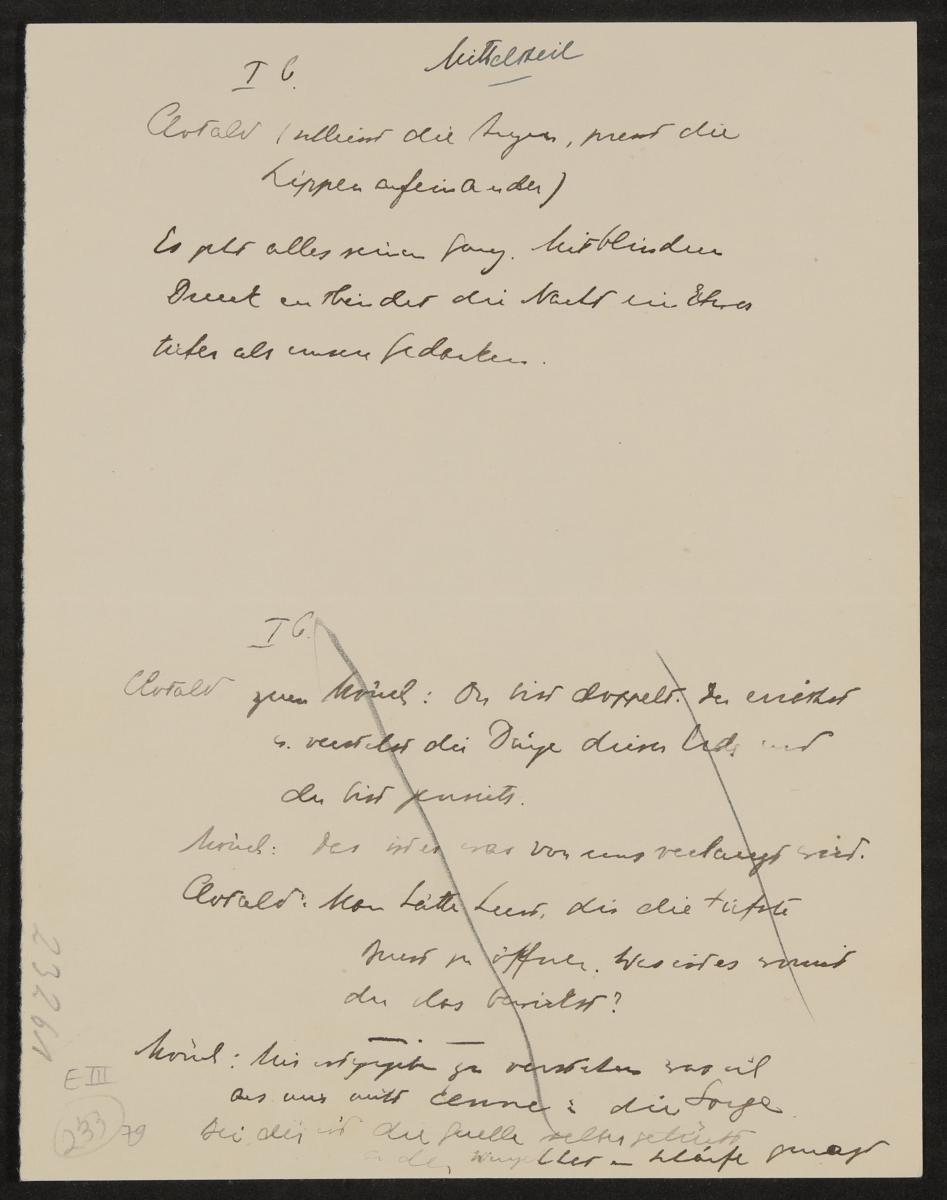 Mittelteil
I 6.
Clotald (schliesst die Augen, presst die
Lippen aufeinander)
Es geht alles seinen Gang. Mit blindem
Druck entbindet die Nacht ein Etwas
tiefer als unsere Gedanken.
I 6.
Clotald zum Mönch: Du bist doppelt. Du
u. verstehst die Dinge dieser und
du bist jenseits.
Mönch: Das ist es was von uns verlangt wird.
Clotald: Man hätte Lust, dir die tiefste
Brust zu öffnen. Was ist es womit
du das bewirkst?
Mönch: Mir ist gegeben zu verstehen was
aus uns : die Sorge
Bei dir ist die Quelle selber getrübt

2326V
E III
233
79